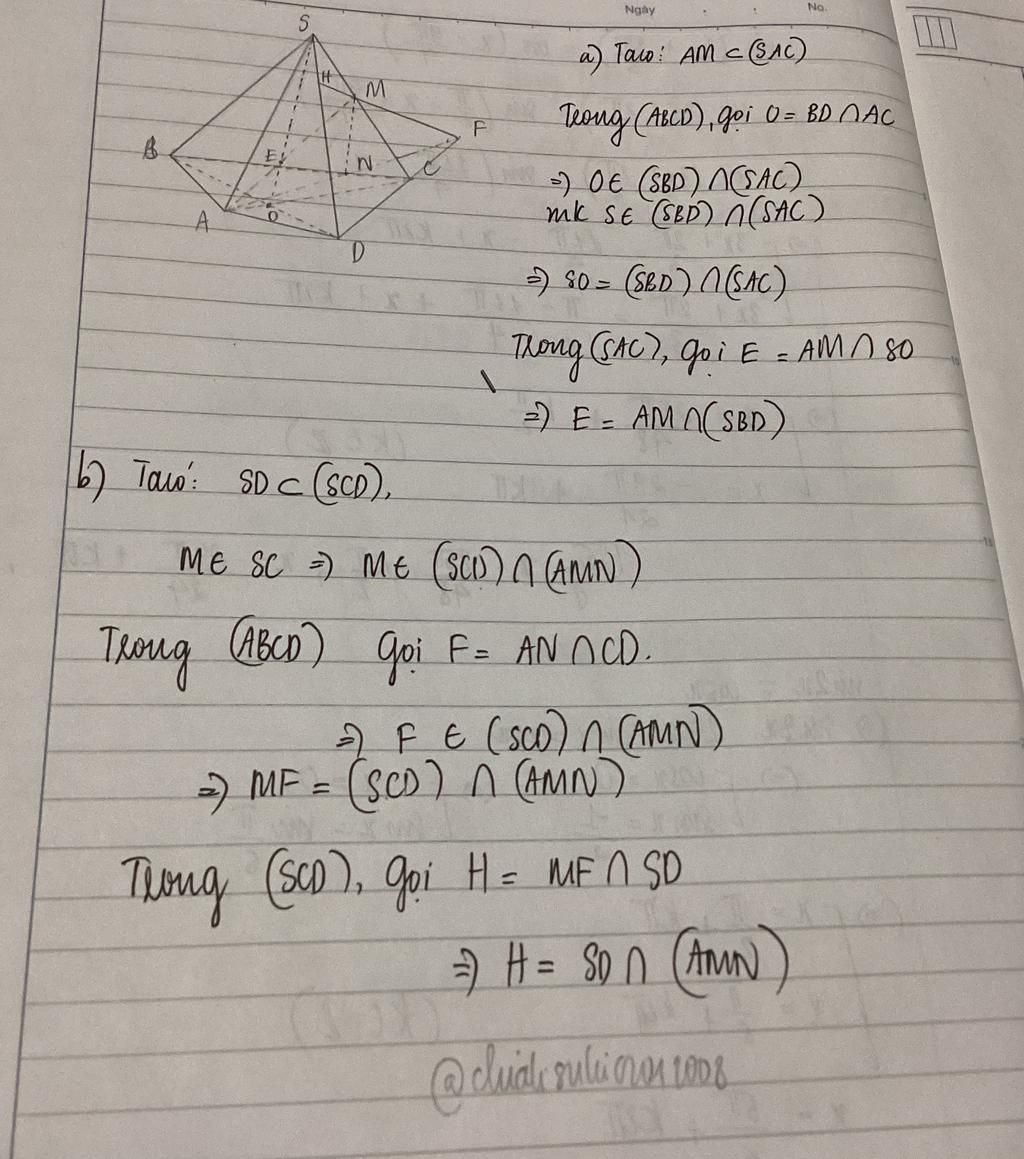 Ngày . : No.
S
H
M
F
B
E
N
C
A
O
D
a) Taco: AM ⊂ (SAC)
Trong (ABCD), gọi O = BD ∩ AC
=> O ∈ (SBD) ∩ (SAC)
mk S ∈ (SBD) ∩ (SAC)
=> SO = (SBD) ∩ (SAC)
Trong (SAC), gọi E = AM ∩ SO
=> E = AM ∩ (SBD)
b) Tacó: SD ⊂ (SCD),
M ∈ SC => M ∈ (SCD) ∩ (AMN)
Trong (ABCD) gọi F = AN ∩ CD.
=> F ∈ (SCD) ∩ (AMN)
=> MF = (SCD) ∩ (AMN)
Trong (SCD), gọi H = MF ∩ SD
=> H = SD ∩ (AMN)